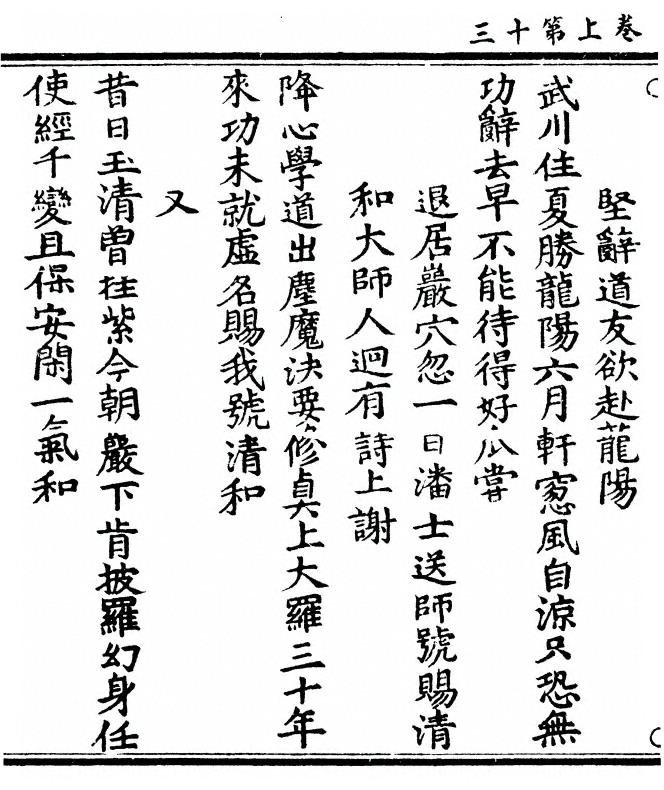 卷上第十三
堅辭道友欲赴龍陽
武川住夏勝龍陽六月軒窓風自涼只恐無
功辭去早不能待得好瓜甞
退居巖穴忽一日潘士送師號賜清
和大師人迴有詩上謝
降心學道出塵魔決要修眞上大羅三十年
來功未就虛名賜我號清和
又
昔日玉清曾拄紫今朝嚴下肯披羅幻身任
使經千變且保安閑一氣和